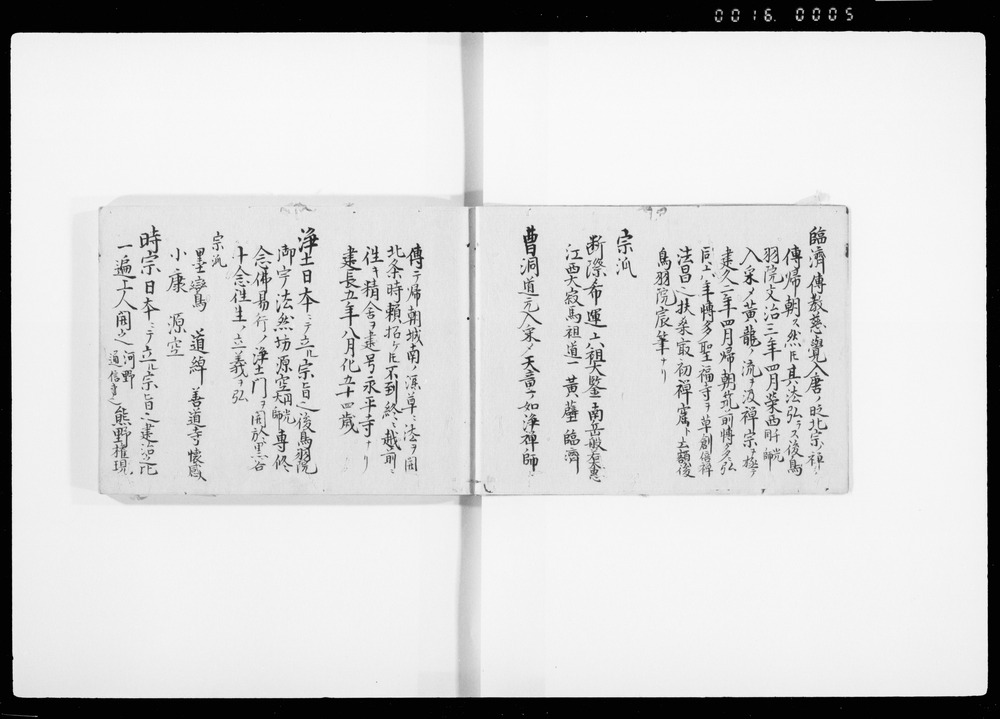 0016. 0005
臨濟傳教慈覺入唐ノ昵北宗ノ禅ヲ
傳帰朝ス然圧其法弘ラス後鳥
羽院文治三年四月栄西
入宋メ黄龍ノ流ヲ汲禅宗ヲ極テ
建久二年四月帰朝筑前博多弘
同六年博多聖福寺ヲ草創
法昌ハ扶桑最初禅窟ト云額後
鳥羽院宸筆ナリ
宗派
断際希運六祖大鑒南岳般若
江西大寂馬祖道一黄蘖臨濟
曹洞道元入宋ノ天童ヲ如浄禅師
傳テ帰朝城南ノ深草ニ法ヲ開
北条時頼招ケ圧不到終ニ越前
往キ精舎ヲ建号永平寺ナリ
建長五年八月化五十四歳
浄土日本ニテ立ル宗旨也後鳥羽院
御宇法然坊源空専修
念佛易行ノ浄土門ヲ開於黒谷
十念往生ノ立義ヲ弘
宗派
曇鸞 道綽 善道寺懐感
小康 源空
時宗日本ニテ立ル宗旨也建治
一遍上人開之河野通信 熊野権現